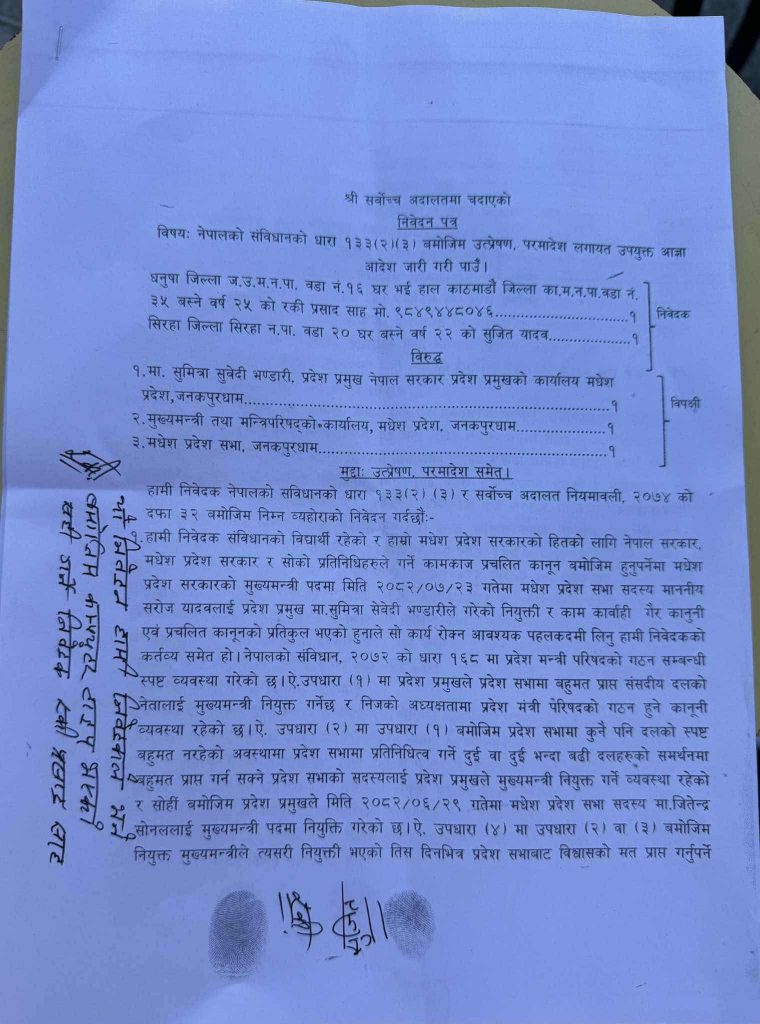 श्री सर्वोच्च अदालतमा चढाएको
निवेदन पत्र
विषयः नेपालको संविधानको धारा १३३(२)(३) बमोजिम उत्प्रेषण, परमादेश लगायत उपयुक्त आज्ञा
आदेश जारी गरी पाउँ।
धनुषा जिल्ला ज.उ.म.न.पा. वडा नं.१६ घर भई हाल काठमाडौं जिल्ला का.म.न.पा.वडा नं.
३५ बस्ने वर्ष २५ को रकी प्रसाद साह मो. ९८४९४४८०४६..............................१
सिरहा जिल्ला सिरहा न.पा. वडा २० घर बस्ने वर्ष २२ को सुजित यादव..................१
निवेदक
विरुद्ध
१.मा. सुमित्रा सुवेदी भण्डारी, प्रदेश प्रमुख नेपाल सरकार प्रदेश प्रमुखको कार्यालय मधेश
प्रदेश,जनकपुरधाम..............................................................१
२.मुख्यमन्त्री तथा मन्त्रिपरिषद्को कार्यालय, मधेश प्रदेश, जनकपुरधाम.................१
३.मधेश प्रदेश सभा, जनकपुरधाम..................................................१
विपक्षी
मुद्दाः उत्प्रेषण, परमादेश समेत।
हामी निवेदक नेपालको संविधानको धारा १३३(२) (३) र सर्वोच्च अदालत नियमावली, २०७४ को
दफा ३२ बमोजिम निम्न व्यहोराको निवेदन गर्दछौंः-
१.हामी निवेदक संविधानको विद्यार्थी रहेको र हाम्रो मधेश प्रदेश सरकारको हितको लागि नेपाल सरकार,
मधेश प्रदेश सरकार र सोको प्रतिनिधिहरुले गर्ने कामकाज प्रचलित कानून बमोजिम हुनुपर्नेमा मधेश
प्रदेश सरकारको मुख्यमन्त्री पदमा मिति २०८२/०७/२३ गतेमा मधेश प्रदेश सभा सदस्य माननीय
सरोज यादवलाई प्रदेश प्रमुख मा.सुमित्रा सेवेदी भण्डारीले गरेको नियुक्ती र काम कार्वाही गैर कानुनी
एवं प्रचलित कानूनको प्रतिकुल भएको हुनाले सो कार्य रोक्न आवश्यक पहलकदमी लिनु हामी निवेदकको
कर्तव्य समेत हो। नेपालको संविधान, २०७२ को धारा १६८ मा प्रदेश मन्त्री परिषदको गठन सम्बन्धी
स्पष्ट व्यवस्था गरेको छ।ऐ.उपधारा (१) मा प्रदेश प्रमुखले प्रदेश सभामा बहुमत प्राप्त संसदीय दलको
नेतालाई मुख्यमन्त्री नियुक्त गर्नेछ र निजको अध्यक्षतामा प्रदेश मंत्री पेरिषदको गठन हुने कानूनी
व्यवस्था रहेको छ।ऐ. उपधारा (२) मा उपधारा (१) बमोजिम प्रदेश सभामा कुनै पनि दलको स्पष्ट
बहुमत नरहेको अवस्थामा प्रदेश सभामा प्रतिनिधित्व गर्ने दुई वा दुई भन्दा बढी दलहरुको समर्थनमा
बहुमत प्राप्त गर्न सक्ने प्रदेश सभाको सदस्यलाई प्रदेश प्रमुखले मुख्यमन्त्री नियुक्त गर्ने व्यवस्था रहेको
र सोहीं बमोजिम प्रदेश प्रमुखले मिति २०८२/०६/२९ गतेमा मधेश प्रदेश सभा सदस्य मा.जितेन्द्र
सोनललाई मुख्यमन्त्री पदमा नियुक्ति गरेको छ।ऐ. उपधारा (४) मा उपधारा (२) वा (३) बमोजिम
नियुक्त मुख्यमन्त्रीले त्यसरी नियुक्ती भएको तिस दिनभित्र प्रदेश सभाबाट विश्वासको मत प्राप्त गर्नुपर्ने
यो निवेदन हामी निवेदकले भने
बमोजिम कम्प्युटर टाइप गरेको
सही गर्ने निवेदक रकी प्रसाद साह
रकी
सुजित